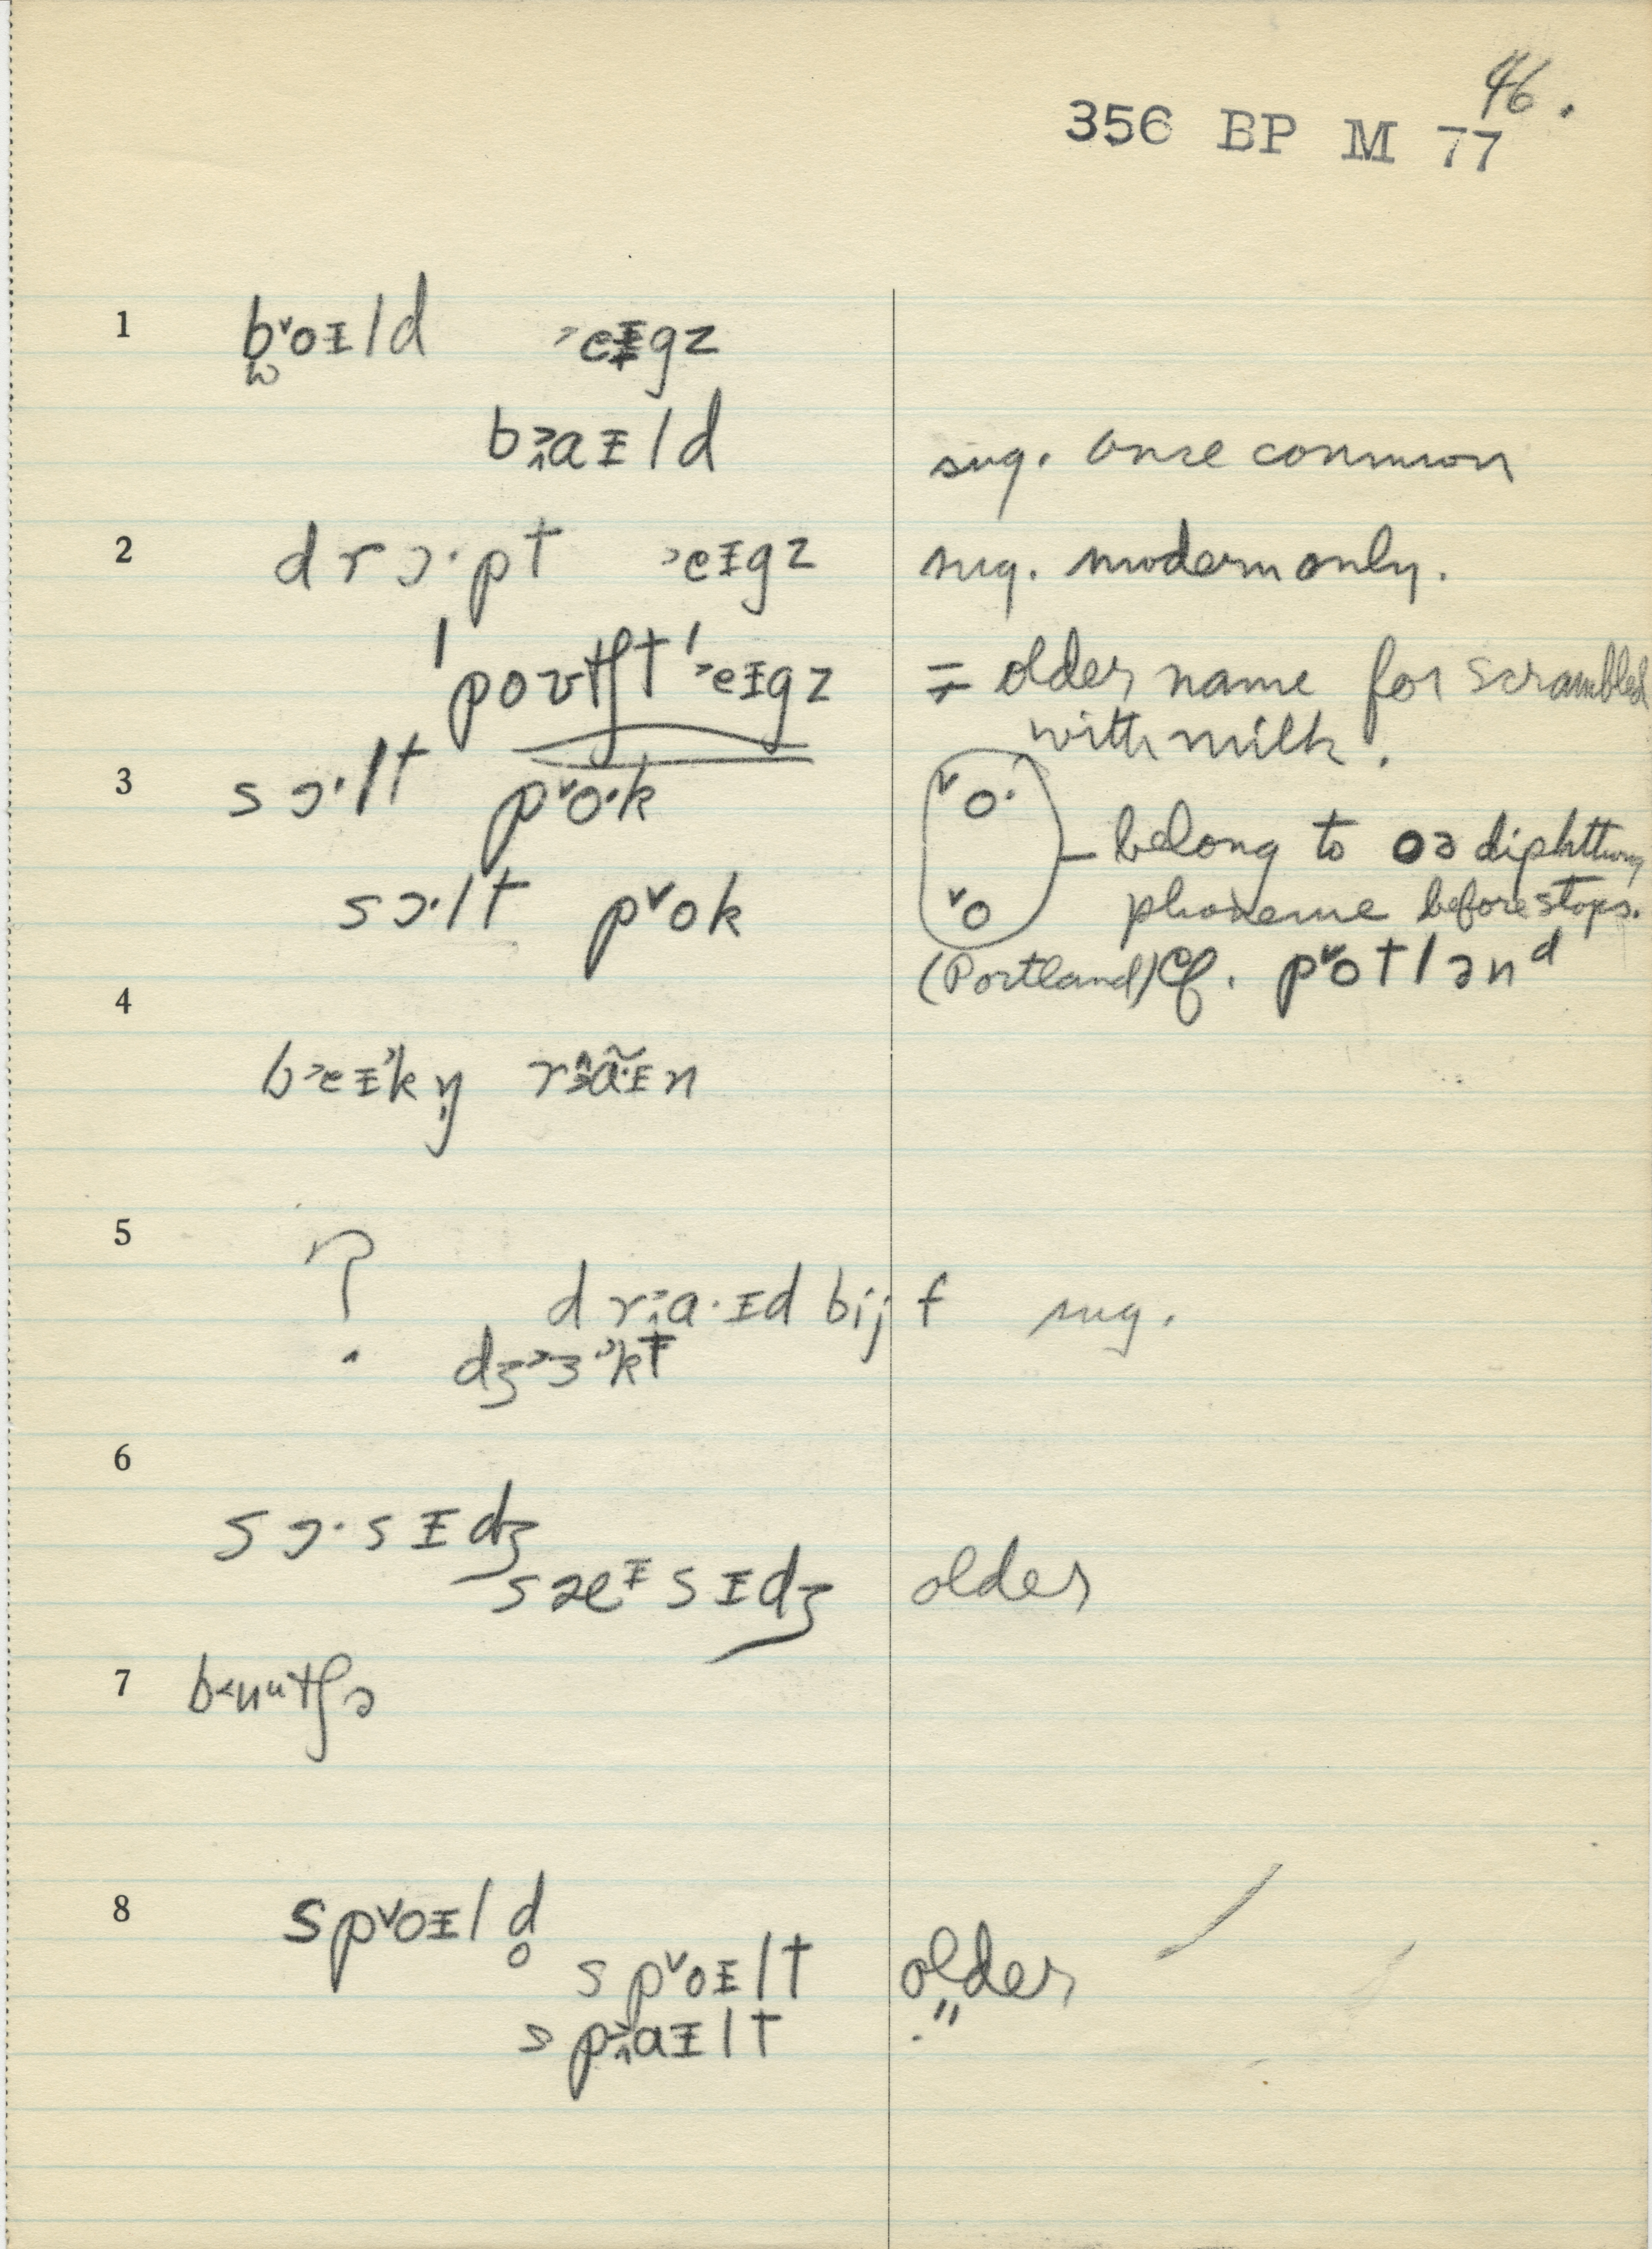 46.
356 BP M 77
1 b˅oɪld ˃eɪgz
b˃aɪld sug. once common
2 drɔ·pt ˃eɪgz sug. modern only.
ˈpoʊtʃt ˈ˃eɪgz = older name for scrambled
with milk.
3 sɔ·lt p˅o·k ˅o· belong to oə diphthong
sɔ·lt p˅ok ˅o phoneme before stops.
(Portland) cf. p˅otlənd
4
b˃eɪkŋ rãɪn
5 ? dr˃a·ɪd bijf sug.
dʒ˃ɜ˃kt
6
sɔ·sɪdʒ
sæɪsɪdʒ older
7 bʊutʃə
8 sp˅oɪld̥
sp˅oɪlt older
sp˃aɪlt "